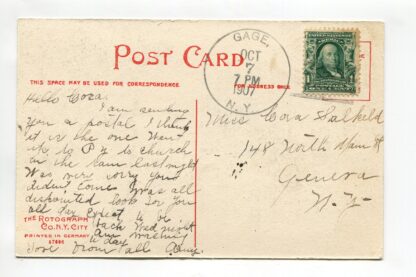 POST CARD
THIS SPACE MAY BE USED FOR CORRESPONDENCE.
FOR ADDRESS ONLY.
GAGE.
OCT
7
7 PM
1907
N.Y.
Hello Cora.
I am sending
you a postal I think
it is the one Went
to P Y to church
in the last night
Was very sorry you
didn't come Was all
disapointed look for you
all day expect to be
back Wed night
am washing
to day
love from all
THE ROTOGRAPH
CO. N.Y. CITY
PRINTED IN GERMANY
Miss Cora
148 North Main St
Geneva
N.Y.